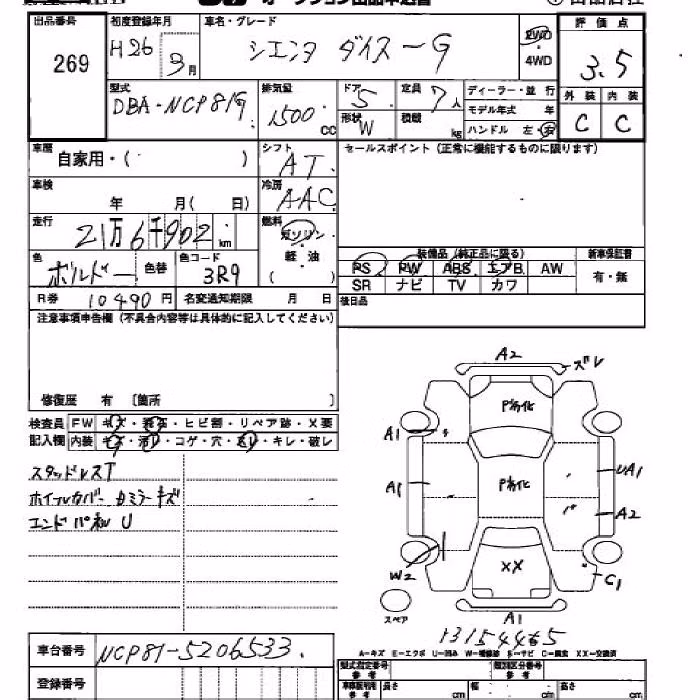 オークション出品申込書
出品番号 初度登録年月 車名・グレード 評価点
269 H26 3月 シエンタ ダイス-G 2WD・4WD 3.5
型式 排気量 ドア 定員 ディーラー・並行 外装 内装
DBA-NCP81G 1500cc 5 7人 モデル年式 年 C C
形状 積載
W kg ハンドル 左・右
車歴 シフト セールスポイント(正常に機能するものに限ります)
自家用・( ) AT
車検 冷房
年 月( 日) AAC
走行 燃料
21万6千902km ガソリン・軽油
( )
色 色替 色コード 装備品(純正品に限る) 新車保証書
ボルドー 3R9 PS PW ABS エアB AW 有・無
SR ナビ TV カワ
R券 10490円 名変通知期限 月 日 後日品
注意事項申告欄(不具合内容等は具体的に記入してください)
修復歴 有 〔箇所 〕
検査員記入欄 FW キズ・飛石・ヒビ割・リペア跡・X要
内装 キズ・汚レ・コゲ・穴・キレ・破レ
スタッドレスT
ホイルカバー ミラーキズ
エンドパネル U
A2
ズレ
P劣化
A1
P劣化
A1 UA1
A2
W2
XX
C1
スペア
A1
13154465
A-キズ E-エクボ U-凹み W-補修跡 S-サビ C-腐食 XX-交換済
車台番号 NCP81-5206533
型式指定番号 類別区分番号
登録番号
車検証利用参考 長さ cm 幅 cm 高さ cm